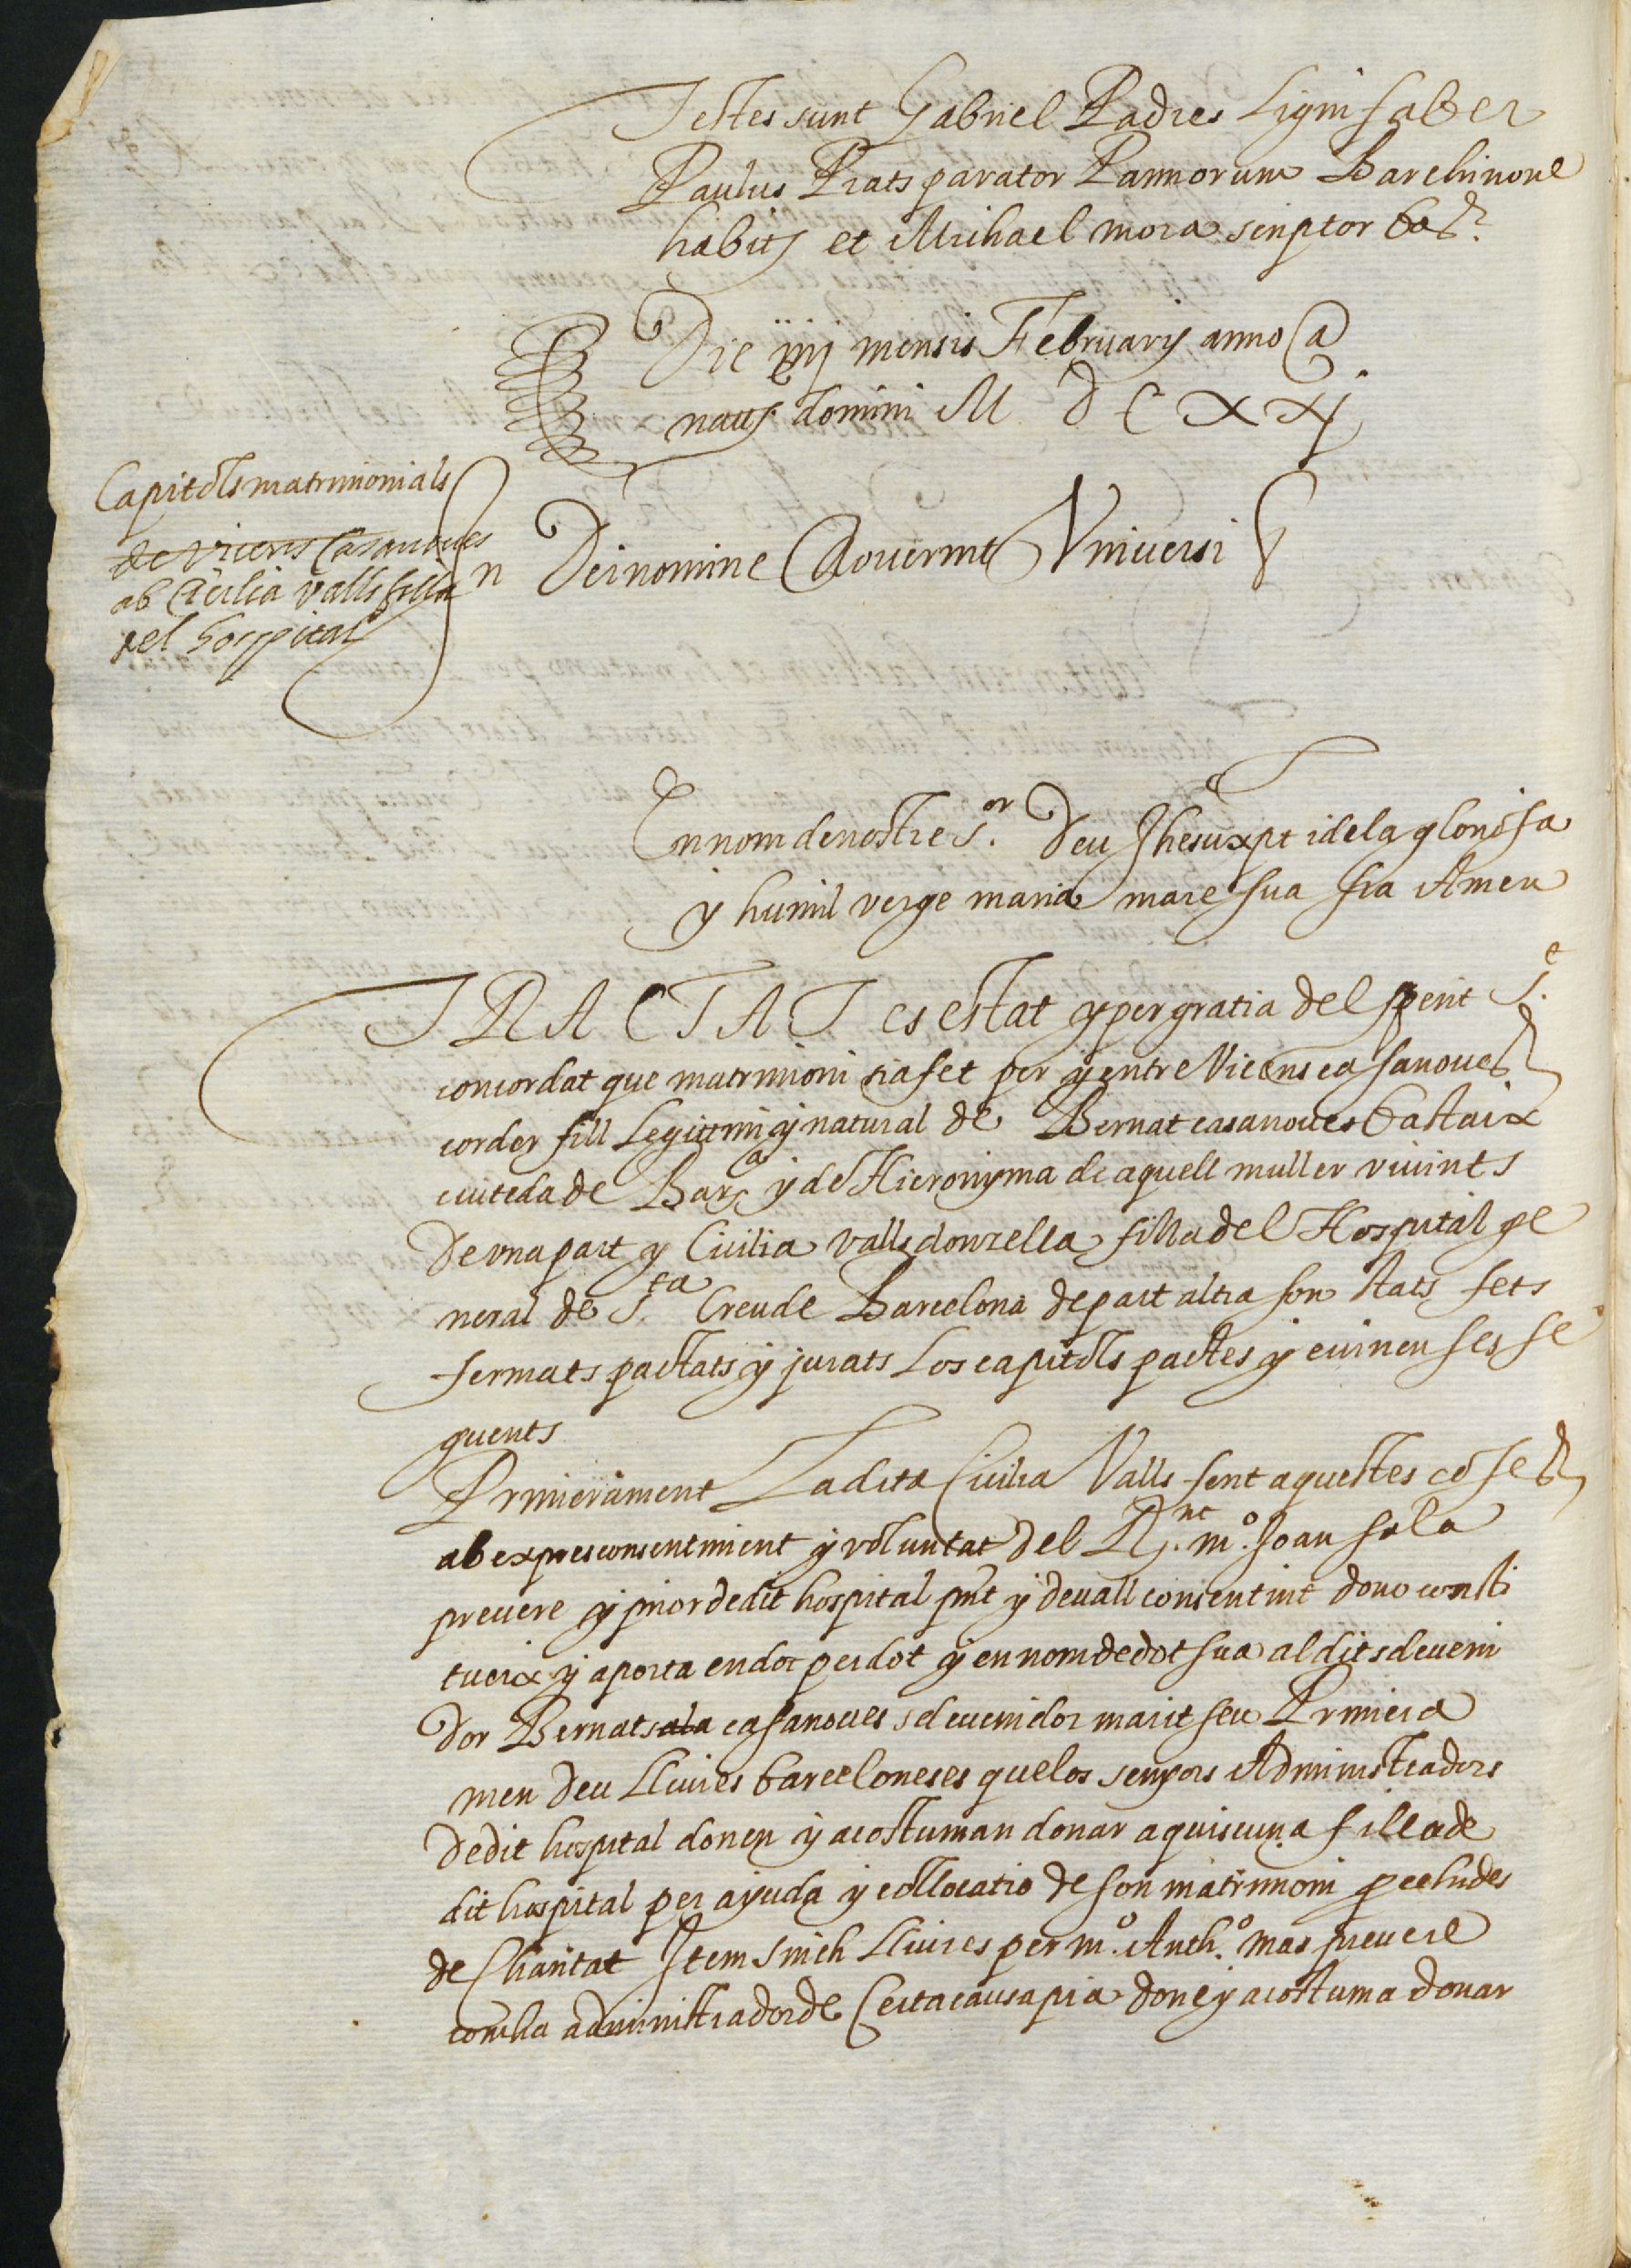 Testes sunt Gabriel Padres Lignifaber
Paulus Prats parator Pannorum Barchinone
habits et Michael mora scriptor
Die iiij mensis Februarij anno a
natts domini M D C XXj
Capitols matrimonials
de vicens Casanoues
ab Cicilia valls filla
del hospital
n Dei nomine Nouerint Vniuersi
En nom de nostre S.or Deu Jhesuxpt i de la gloriosa
y humil verge maria mare sua sia Amen
TRACTAT es estat y per gratia del sperit S.t
concordat que matrimoni sia fet per y entre Vicens casanoues
corder fill Legittim y natural de Bernat casanoues bastaix
ciuteda de Bar.a y de Hieronyma de aquell muller viuints
De vna part y Cicilia valls donzella filla del Hospital ge
neral de S.ta Creu de Barcelona de part altra son stats fets
fermats pactats y jurats Los capitols pactes y auinenses se
guents
Primerament La dita Cicilia Valls fent aquestes coses
ab expres consentiment y voluntat del R.nt m.o Joan sala
preuere y prior de dit hospital pnt y deuall consentint dono consti
tueix y aporta en dot per dot y en nom de dot sua al dit sdeueni
dor Bernat sala casanoues sdeuenidor marit seu Primera
men deu Lliures barceloneses que los senyors Administradors
De dit hospital donen y acostuman donar a quiscuna filla de
dit hospital per ajuda y collocatio de son matrimoni
de Charitat Item sinch Lliures per m.o Anth.o mas preuere
com ha administrador de Certa causa pia done y acostuma donar